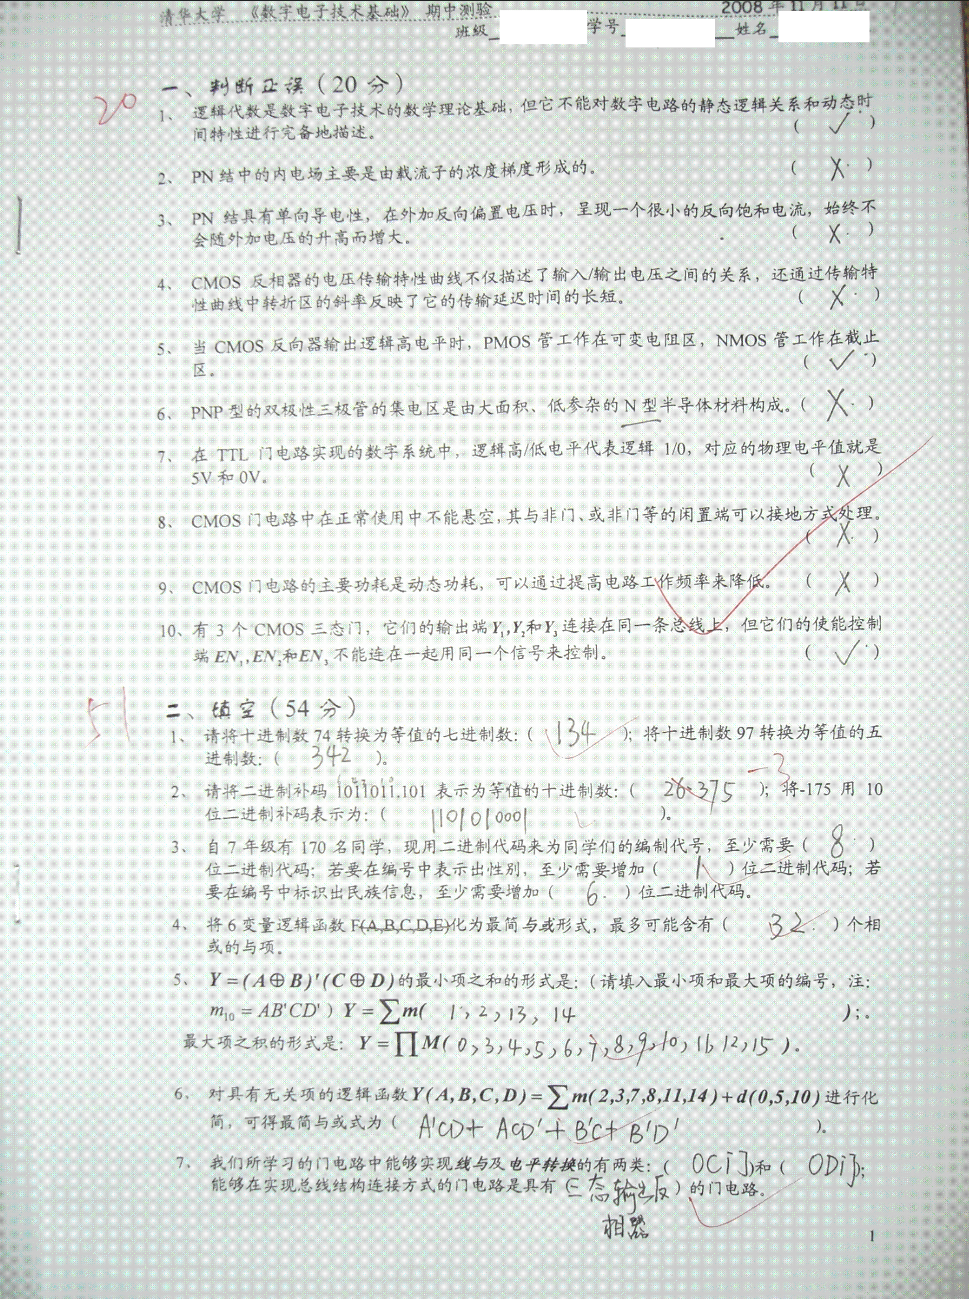 清华大学 《数字电子技术基础》 期中测验 2008 年 11 月 11 日
班级 学号 姓名
20
一、判断正误（20 分）
1、 逻辑代数是数字电子技术的数学理论基础，但它不能对数字电路的静态逻辑关系和动态时
间特性进行完备地描述。 （ ✓ ）
2、 PN 结中的内电场主要是由载流子的浓度梯度形成的。 （ X ）
3、 PN 结具有单向导电性，在外加反向偏置电压时，呈现一个很小的反向饱和电流，始终不
会随外加电压的升高而增大。 （ X ）
4、 CMOS 反相器的电压传输特性曲线不仅描述了输入/输出电压之间的关系，还通过传输特
性曲线中转折区的斜率反映了它的传输延迟时间的长短。 （ X ）
5、 当 CMOS 反向器输出逻辑高电平时，PMOS 管工作在可变电阻区，NMOS 管工作在截止
区。 （ ✓ ）
6、 PNP 型的双极性三极管的集电区是由大面积、低参杂的 N 型半导体材料构成。（ X ）
7、 在 TTL 门电路实现的数字系统中，逻辑高/低电平代表逻辑 1/0，对应的物理电平值就是
5V 和 0V。 （ X ）
8、 CMOS 门电路中在正常使用中不能悬空，其与非门、或非门等的闲置端可以接地方式处理。
（ X ）
9、 CMOS 门电路的主要功耗是动态功耗，可以通过提高电路工作频率来降低。 （ X ）
10、有 3 个 CMOS 三态门，它们的输出端Y₁,Y₂和Y₃连接在同一条总线上，但它们的使能控制
端 EN₁,EN₂和EN₃ 不能连在一起用同一个信号来控制。 （ ✓ ）
51
二、填空（54 分）
1、 请将十进制数 74 转换为等值的七进制数：（ 134 ）；将十进制数 97 转换为等值的五
进制数：（ 342 ）。
-3
2、 请将二进制补码 1011011.101 表示为等值的十进制数：（ 26.375 ）；将-175 用 10
位二进制补码表示为：（ 1101010001 ）。
3、 自 7 年级有 170 名同学，现用二进制代码来为同学们的编制代号，至少需要（ 8 ）
位二进制代码；若要在编号中表示出性别，至少需要增加（ 1 ）位二进制代码；若
要在编号中标识出民族信息，至少需要增加（ 6 ）位二进制代码。
4、 将 6 变量逻辑函数 F(A,B,C,D,E)化为最简与或形式，最多可能含有（ 32 ）个相
或的与项。
5、 Y = (A⊕B)'(C⊕D)的最小项之和的形式是：（请填入最小项和最大项的编号，注：
m₁₀ = AB'CD' ）Y = ∑m( 1, 2, 13, 14 )；。
最大项之积的形式是：Y = ∏M( 0, 3, 4, 5, 6, 7, 8, 9, 10, 11, 12, 15 )。
6、 对具有无关项的逻辑函数Y(A,B,C,D) = ∑m(2,3,7,8,11,14)+d(0,5,10)进行化
简，可得最简与或式为（ A'CD + ACD' + B'C + B'D' ）。
7、 我们所学习的门电路中能够实现线与及电平转换的有两类：（ OC门 ）和（ OD门 ）；
能够在实现总线结构连接方式的门电路是具有（ 三态输出反 ）的门电路。
相器
1